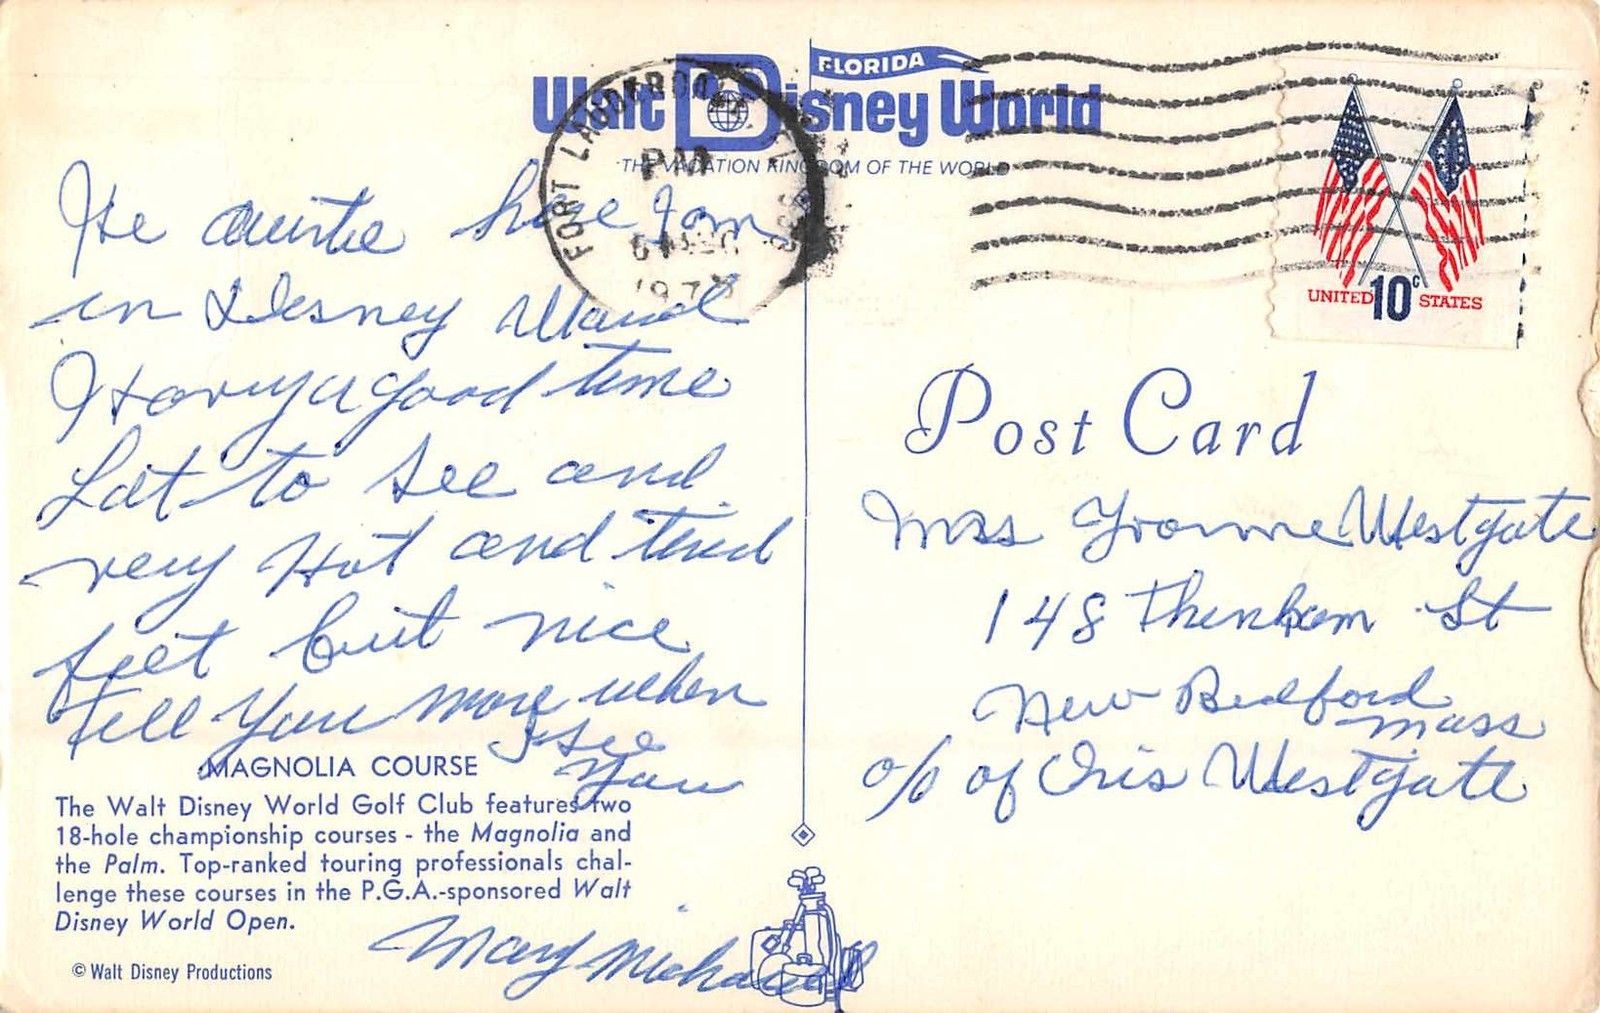 FLORIDA
Walt Disney World
THE VACATION KINGDOM OF THE WORLD
FORT LAUDERDALE
PM
UNITED 10c STATES
here I am
in Disney World
good time
Lot to see and
very Hot and tired
feet but nice
Tell you more when
I see
you
MAGNOLIA COURSE
The Walt Disney World Golf Club features two
18-hole championship courses - the Magnolia and
the Palm. Top-ranked touring professionals chal-
lenge these courses in the P.G.A.-sponsored Walt
Disney World Open.
© Walt Disney Productions
Mary
Post Card
Yvonne Westgate
148 St
New Bedford
Mass
of Iris Westgate